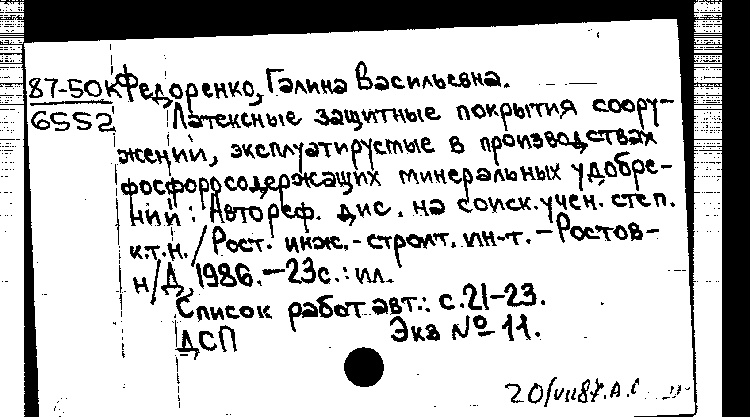 87-50к Федоренко, Галина Васильевна.
6552 Латексные защитные покрытия соору-
жений, эксплуатируемые в производствах
фосфоросодержащих минеральных удобре-
ний : Автореф. дис. на соиск. учен. степ.
к.т.н. / Рост. инж.-строит. ин-т. - Ростов-
н/Д, 1986. - 23с. : ил.
Список работ авт.: с.21-23.
ДСП Экз № 11.
20/VII87.